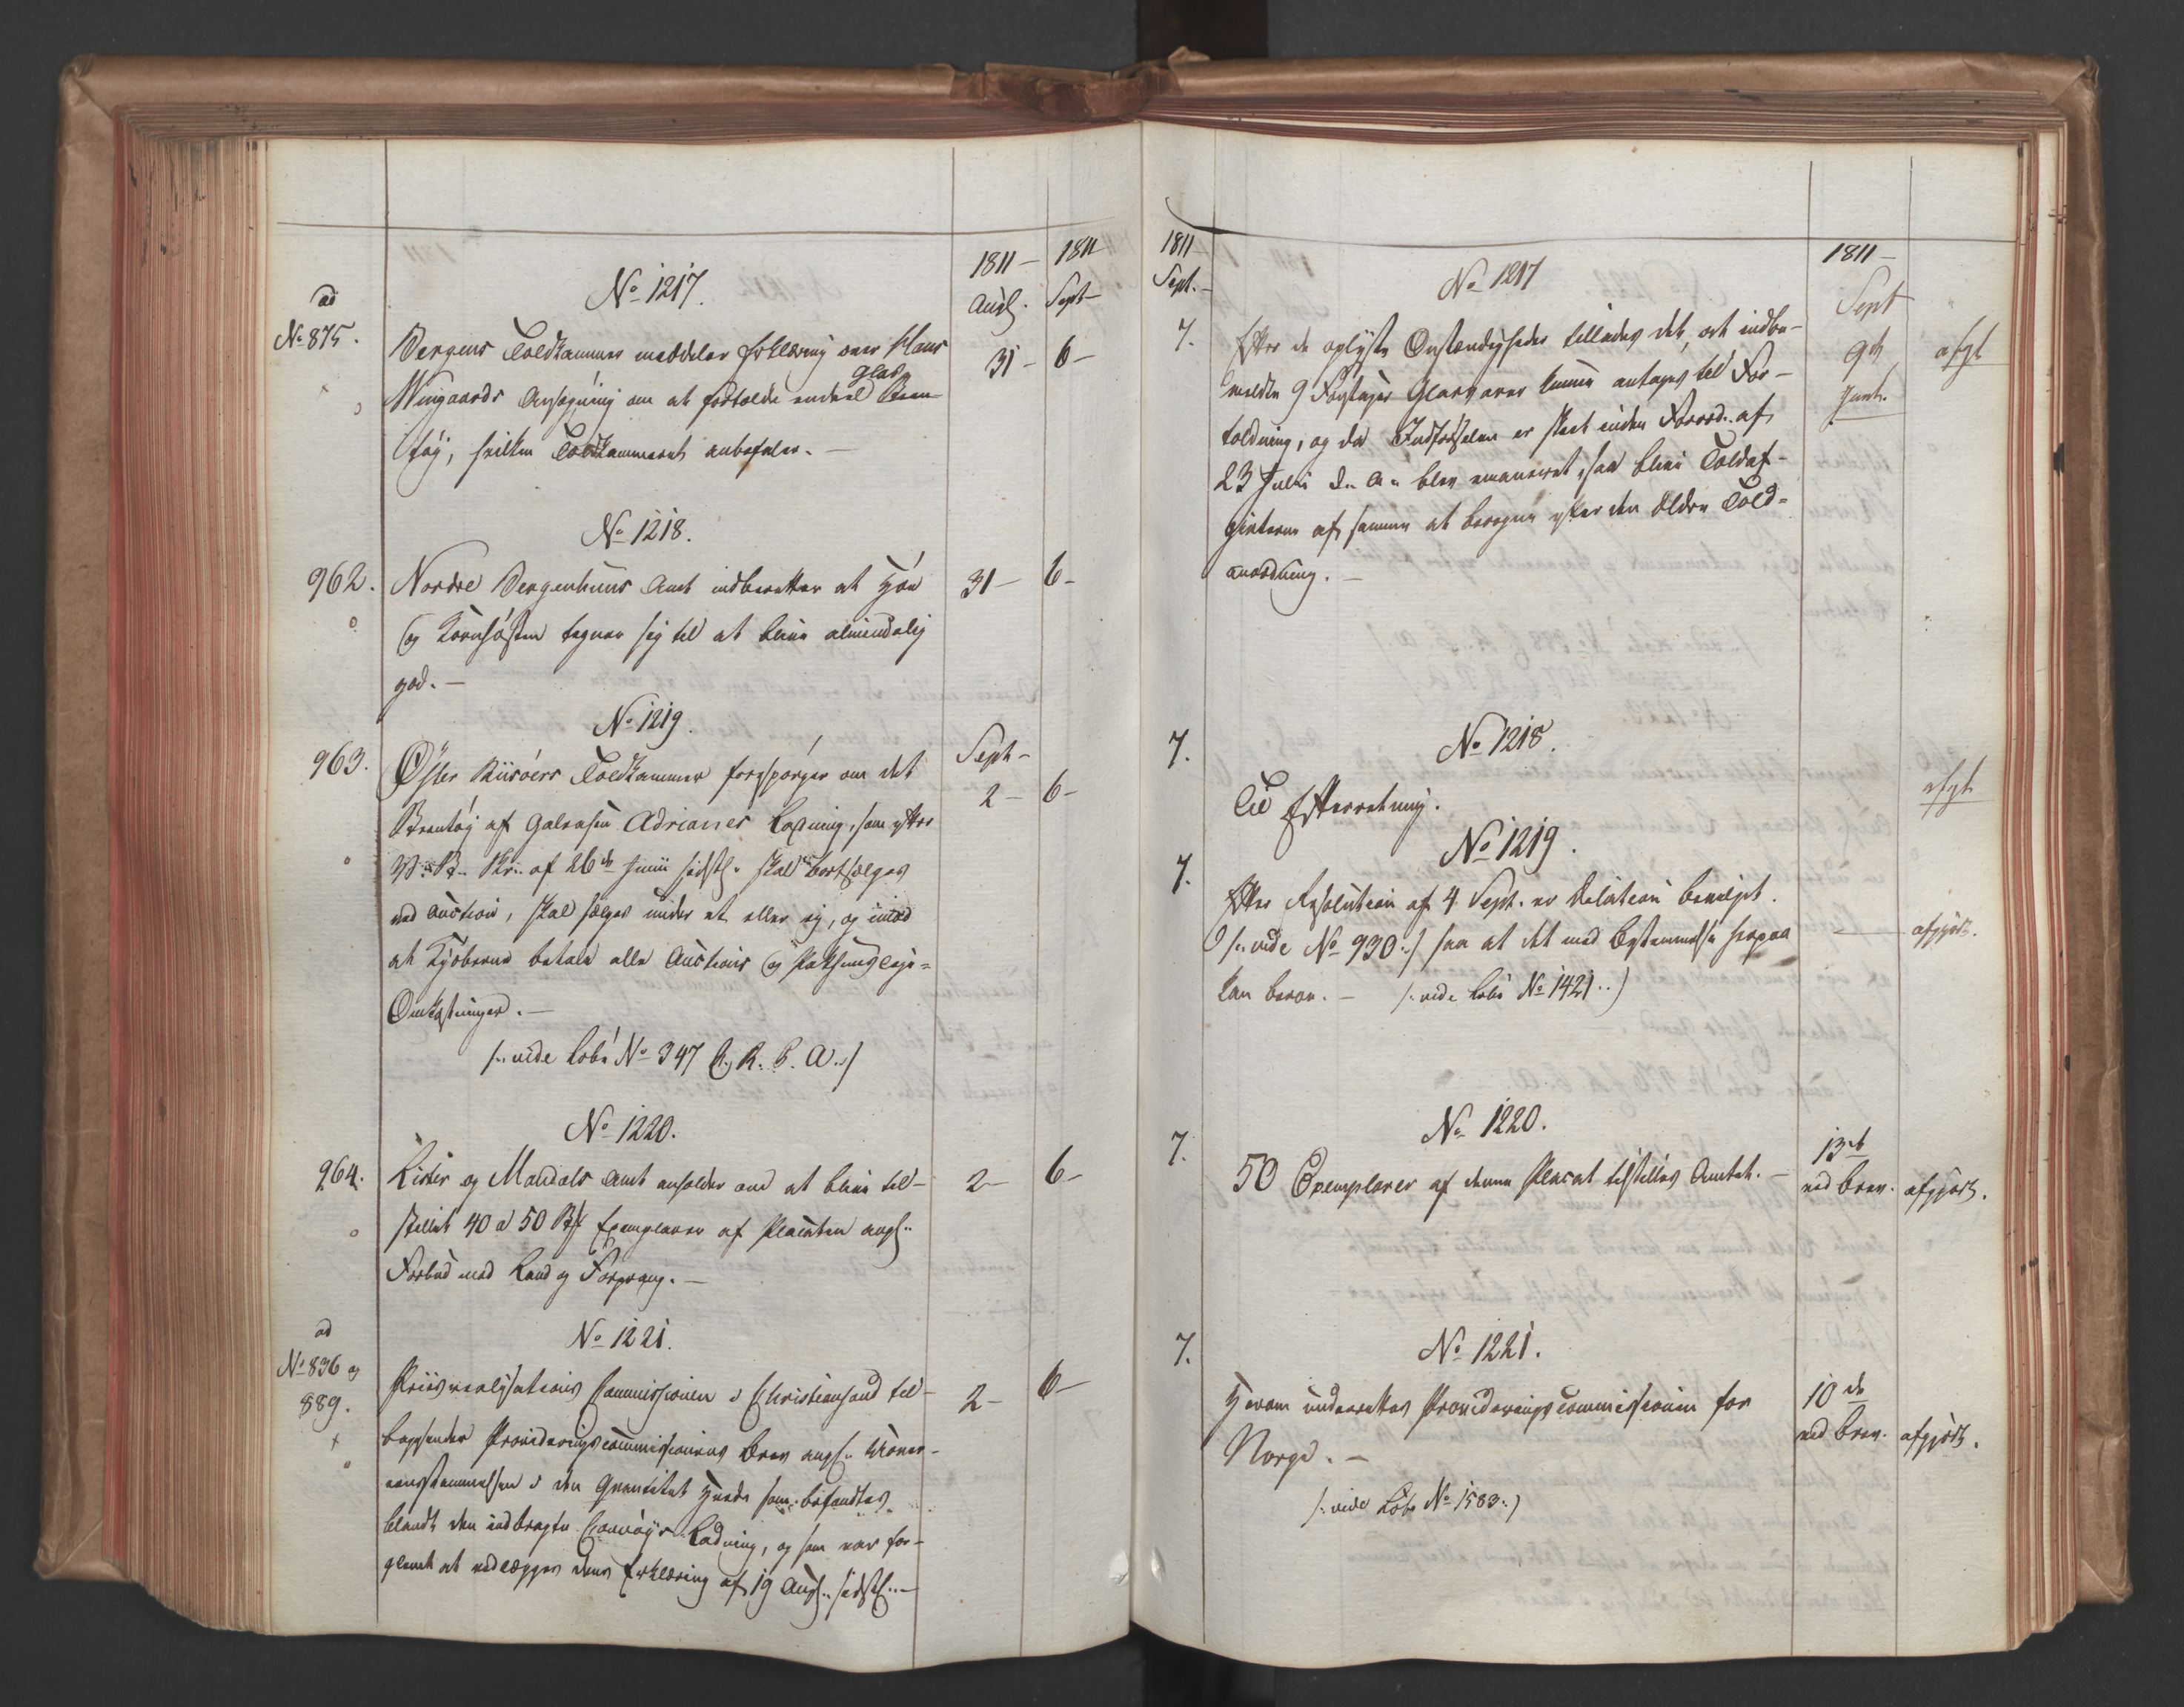 1811 –
1811
Augs.
Sept –
No 1217.
ad
No 875.
Bergens Toldkammer meddeler Erklæring over Claus
31 –
6 –
Wingaards Ansøgning om at fortolde endeel Glas
tøy, hvilken Toldkammeret anbefaler. –
No 1218.
962.
Nordre Bergenhuus Amt indberetter at Høe
31 –
6 –
og Kornhøsten tegner sig til at blive almindelig
god. –
No 1219.
963.
Øster Riisøers Toldkammer forespørger om det
Sept –
2 –
6 –
af Galeasen Adrianes Ladning, som efter
af 26de Junii sidstl. skal bortsælges
ved Auction, skal sælges under et eller ei, og imod
at Kjøberne betale alle Auctions og
Omkostninger. –
/: vide Løbe No 347 C. R. P. A. :/
No 1220.
964.
Lister og Mandals Amt anholder om at blive til-
2 –
6 –
stillet 40 a 50 Exemplarer af Placaten angl.
Forbud mod Land og Forprang. –
No 1221.
ad
No 836 og
889.
Priisrealisations Commissionen i Christiansand til-
2 –
6 –
bagesender Provideringscommissionens Brev angl. Uover-
eensstemmelsen i den Quantitet Hvede som befandtes
blandt den indbragte Convoys Ladning, og som var for-
glemt at vedlægges dens Erklæring af 19 Augs. sidstl. –
1811
Sept. –
1811 –
Sept
No 1217
7.
Efter de oplyste Omstændigheder tillades det, at indbe-
9de
afgt
meldte 9 Glasvarer kunne antages til For-
toldning, og da Indførselen er skeet inden Forord. af
23 Julii d. A. blev emaneret, saa blive Toldaf-
givterne af samme at beregne efter den ældre Told-
anordning. –
7.
No 1218.
afgt
Til Efterretning.
No 1219.
7.
Efter Resolution af 4 Sept. er Dilation bevilget.
/: vide No 930 :/ saa at det med Bestemmelse herpaa
– afgjort.
kan beroe. – /: vide Løbe No 1421 :/
No 1220.
7.
50 Exemplarer af denne Placat tilstilles Amtet. –
13de
ved Brev.
afgjort.
No 1221.
7.
Herom underrettes Provideringscommissionen for
10de
ved Brev.
afgjort.
Norge. –
/: vide Løbe No 1583 :/